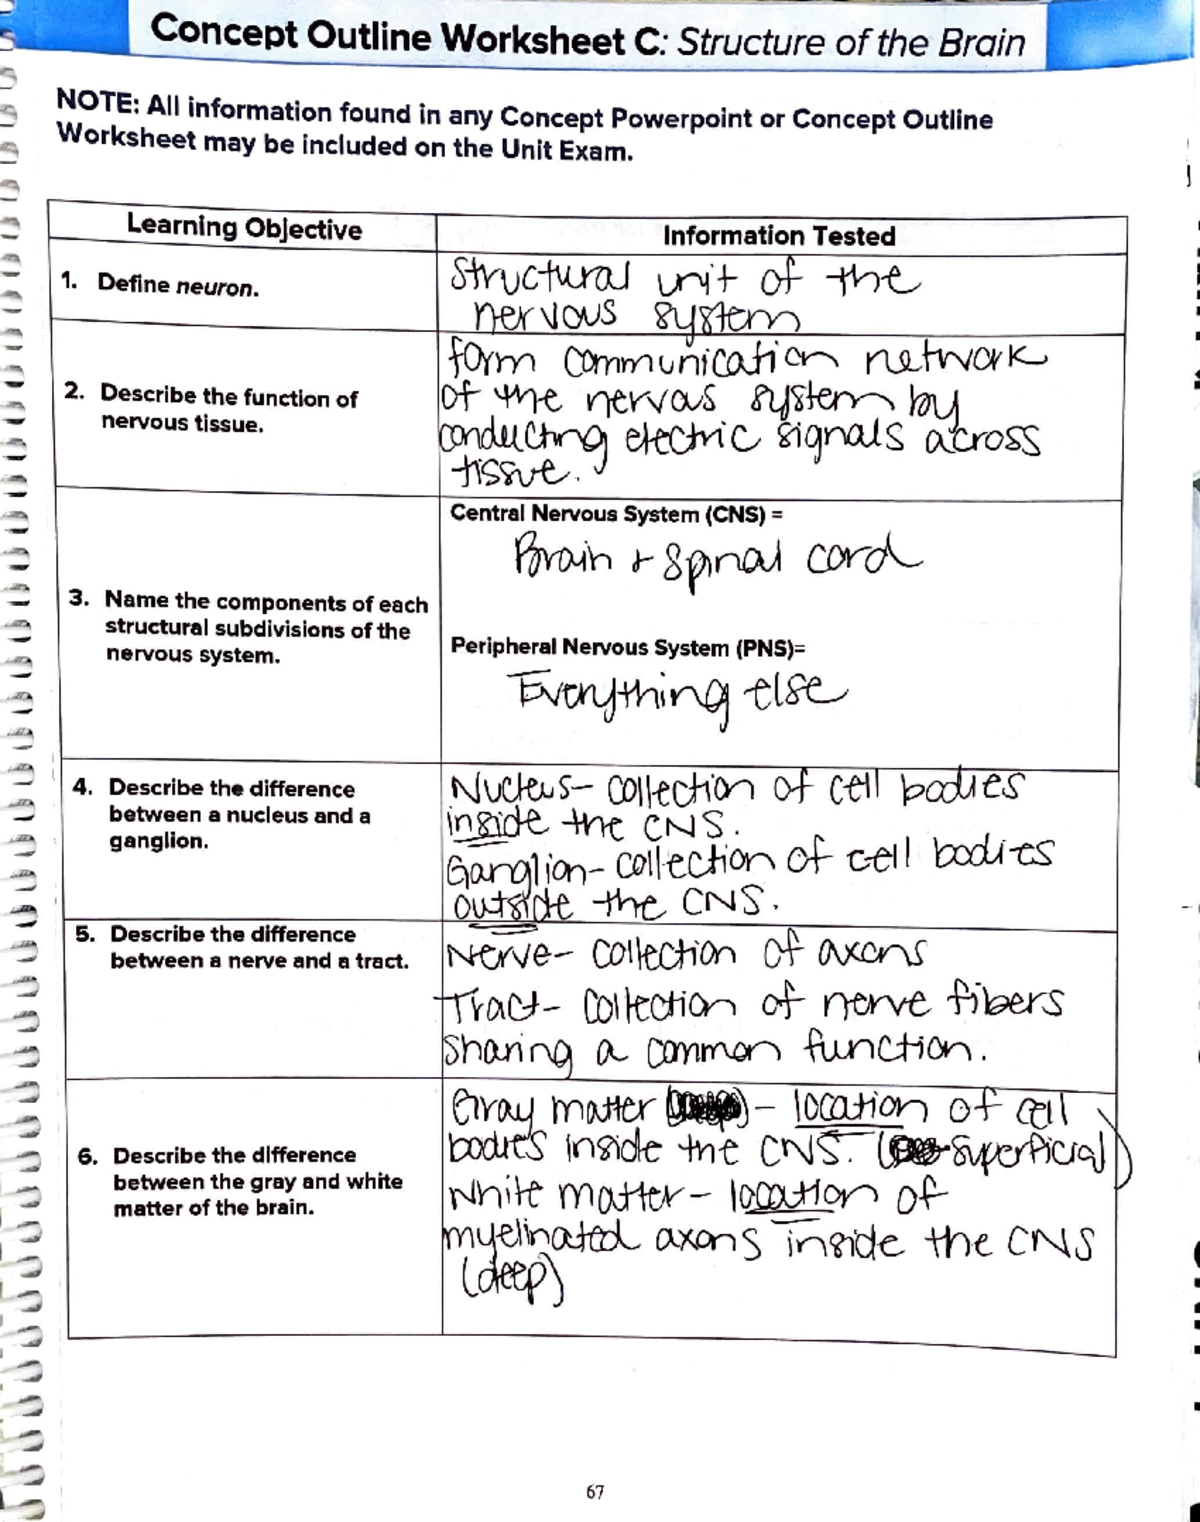 Concept Outline Worksheet C: Structure of the Brain
NOTE: All information found in any Concept Powerpoint or Concept Outline
Worksheet may be included on the Unit Exam.
Learning Objective
Information Tested
1. Define neuron.
Structural unit of the
nervous system
2. Describe the function of
nervous tissue.
form communication network
of the nervous system by
conducting electric signals across
tissue.
3. Name the components of each
structural subdivisions of the
nervous system.
Central Nervous System (CNS) =
Brain + Spinal cord
Peripheral Nervous System (PNS)=
Everything else
4. Describe the difference
between a nucleus and a
ganglion.
Nucleus- collection of cell bodies
inside the CNS.
Ganglion- collection of cell bodies
outside the CNS.
5. Describe the difference
between a nerve and a tract.
Nerve- collection of axons
Tract- collection of nerve fibers
sharing a common function.
6. Describe the difference
between the gray and white
matter of the brain.
Gray matter - location of cell
bodies inside the CNS. (superficial)
White matter - location of
myelinated axons inside the CNS
(deep)
67